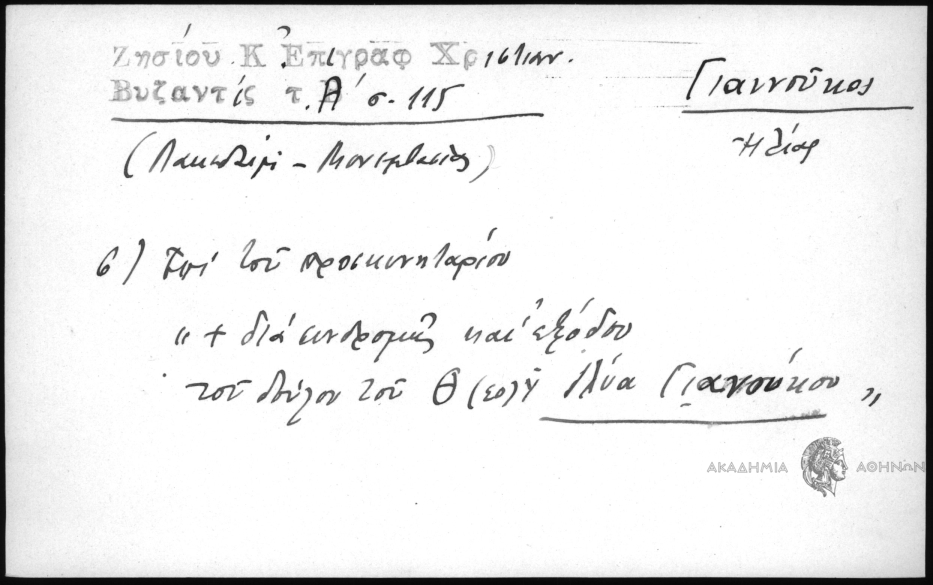 Ζησίου Κ Ἐπιγραφ Χριστιαν.
Βυζαντίς τ. Α' σ. 115
Γιαννοῦκος
Ἠλίας
(Λακεδαίμ - Μονεμβασίας)
6) Ἐπί τοῦ προσκυνηταρίου
" + διά συνδρομῆς καί ἐξόδου
τοῦ δούλου τοῦ Θ(εο)ῦ Ἠλύα Γιανούκου "
ΑΚΑΔΗΜΙΑ ΑΘΗΝΩΝ